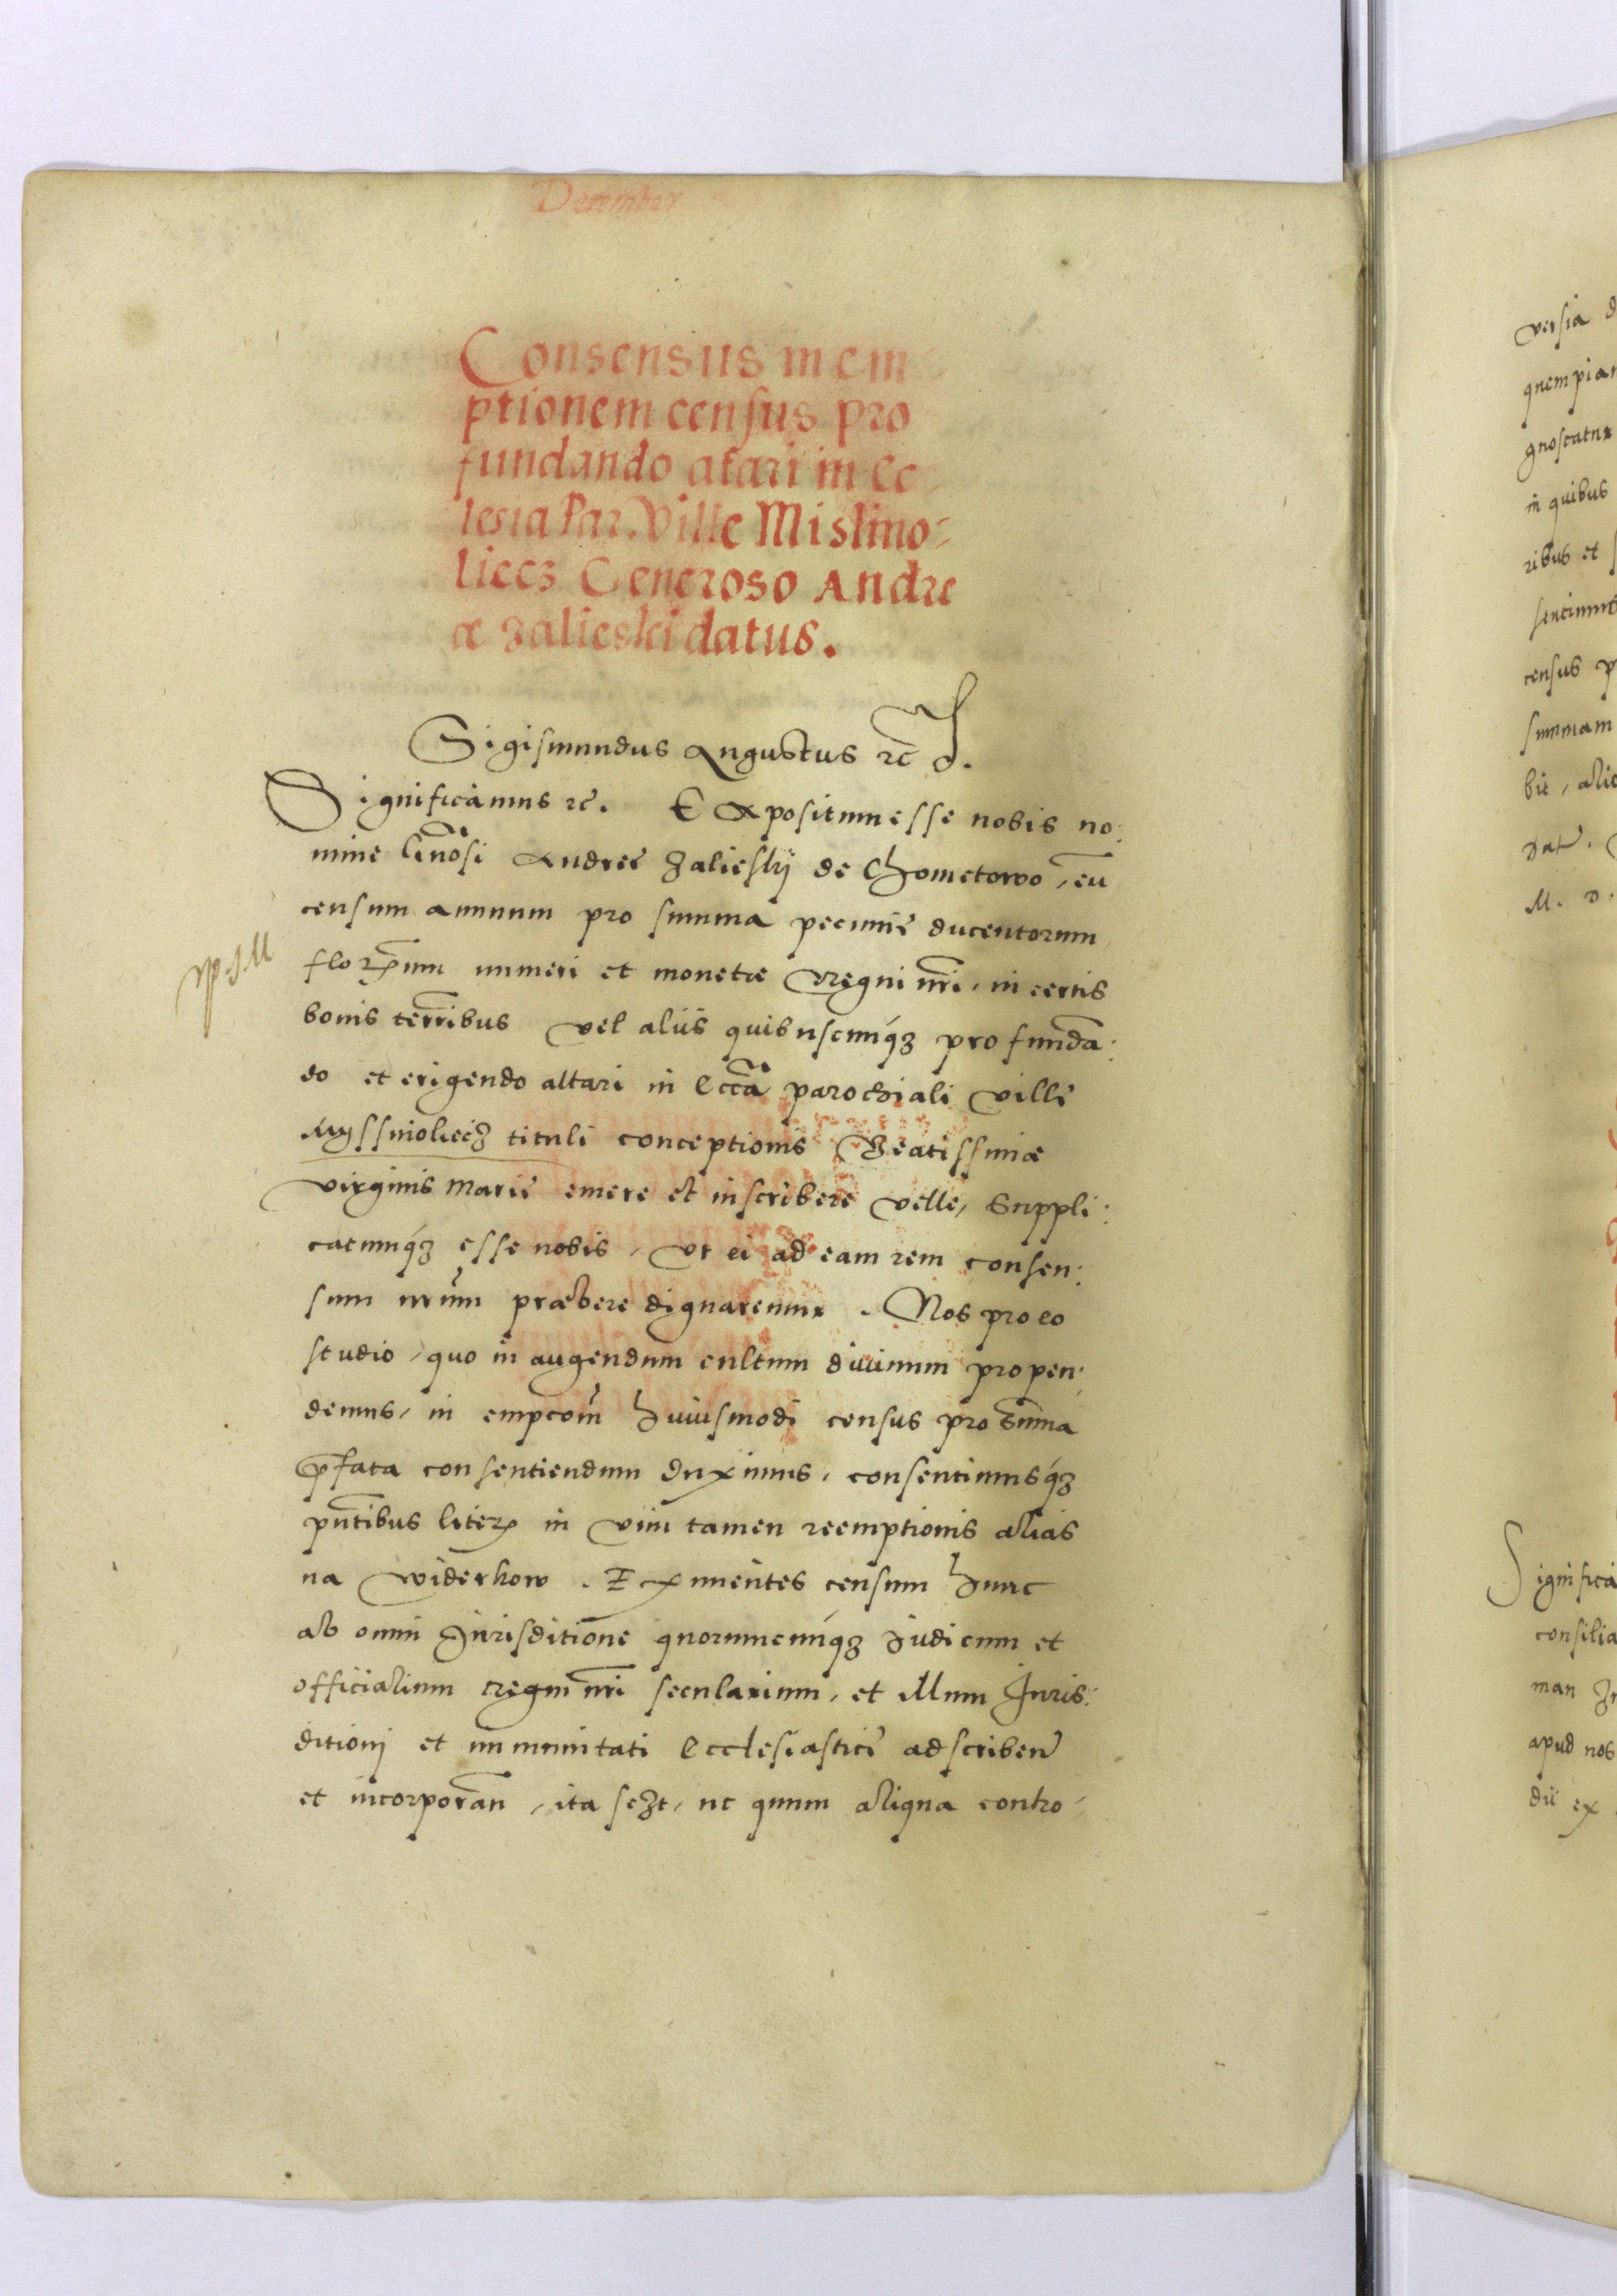 December
Consensus in em
ptionem census pro
fundando altari in Ec
lesia Par. Ville Mislino-
liecz Generoso Andre
æ Zalieski datus.
Sigismundus Augustus rc̃
Significamus rc̃. Expositum esse nobis no:
mine Gñosi Andreę Zalieskij de Chometowo, eũ
censum annuum pro summa pecunię ducentorum
florenum numeri et monetæ Regni nr̃i, in certis
bonis terr̃ibus vel aliis quibuscunq́ꝫ pro fundã:
do et erigendo altari in Eccĩa parochiali villę
Myssnioliecz tituli conceptionis Beatissimæ
virginis Marię emere et inscribere velle, Suppli:
catumq́ꝫ esse nobis, vt ei ad eam rem consen:
sum nr̃um præbere dignaremur. Nos pro eo
studio, quo in augendum cultum divinum propen:
demus, in empcom̃ huiusmodi census pro sum̃a
p̃fata consentiendum duximus, consentimusq́ꝫ
pñtibus literꝫ in vim tamen reemptionis alias
na widerkow. Eximentes censum hunc
ab omni Jurisditione quorumcunq́ꝫ Judicum et
officialium regni nr̃i secularium, et illum Juris:
ditioni et immunitati Ecclesiasticę adscribeñ
et incorporañ, ita sczt, ut quum aliqua contro-
versia
quempiam
gnoscatur
in quibus
ribus et
sentiunt
census p
summam
bit, alio
Dat̃.
M. D.
Significa
consilia
man
apud nos
dii ex